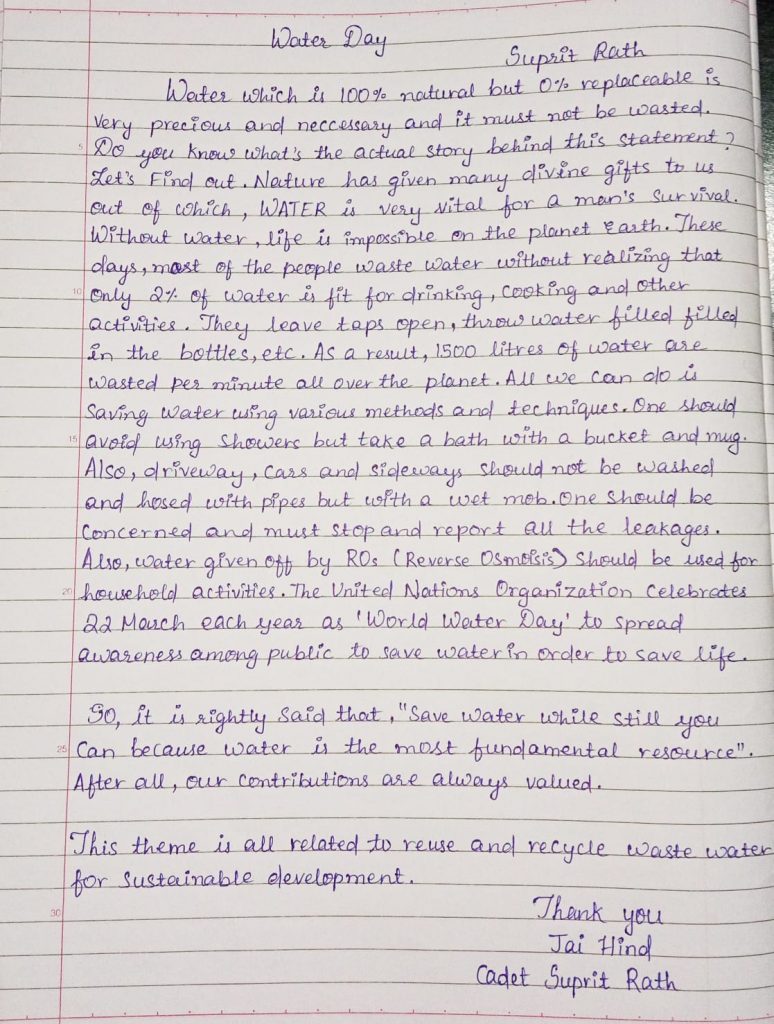 Water Day
Suprit Rath
Water which is 100% natural but 0% replaceable is
very precious and neccessary and it must not be wasted.
5 Do you know what's the actual story behind this statement?
Let's Find out. Nature has given many divine gifts to us
out of which, WATER is very vital for a man's survival.
Without water, life is impossible on the planet Earth. These
days, most of the people waste water without realizing that
10 only 2% of water is fit for drinking, cooking and other
activities. They leave taps open, throw water filled filled
in the bottles, etc. As a result, 1500 litres of water are
wasted per minute all over the planet. All we can do is
saving water using various methods and techniques. One should
15 avoid using showers but take a bath with a bucket and mug.
Also, driveway, cars and sideways should not be washed
and hosed with pipes but with a wet mob. One should be
concerned and must stop and report all the leakages.
Also, water given off by ROs (Reverse Osmoisis) should be used for
20 household activities. The United Nations Organization celebrates
22 March each year as 'World Water Day' to spread
awareness among public to save water in order to save life.
So, it is rightly said that, "Save water while still you
25 can because water is the most fundamental resource".
After all, our contributions are always valued.
This theme is all related to reuse and recycle waste water
for sustainable development.
30
Thank you
Jai Hind
Cadet Suprit Rath